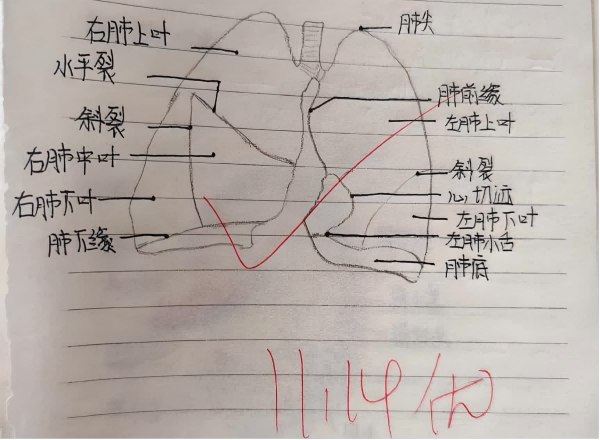 右肺上叶
水平裂
斜裂
右肺中叶
右肺下叶
肺下缘
肺尖
肺前缘
左肺上叶
斜裂
心切迹
左肺下叶
左肺小舌
肺底
11.14 优